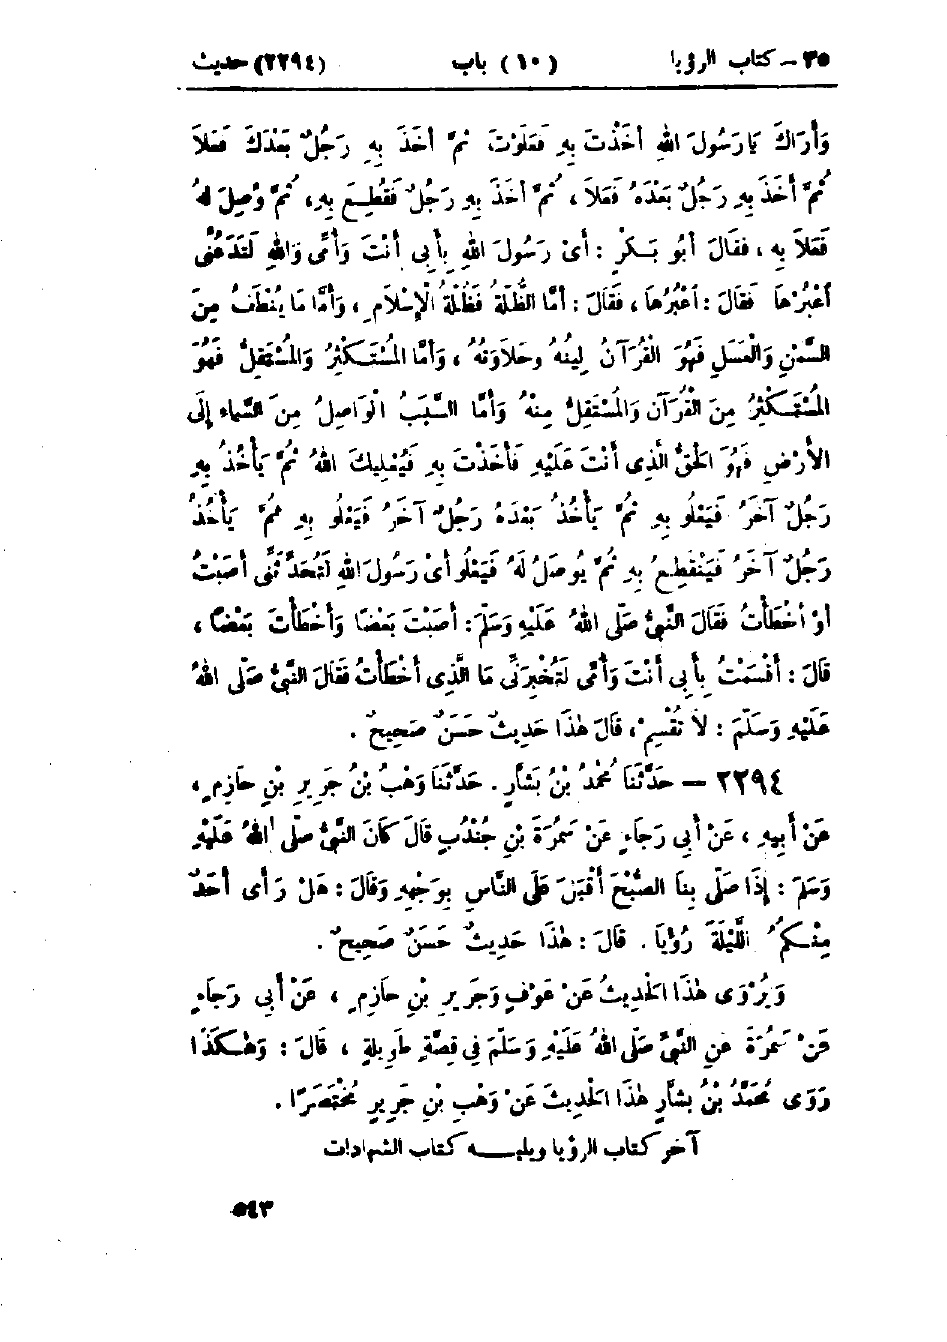 ٣٥ - كتاب الرؤيا (١٠) باب (٢٢٩٤) حديث
وَأَرَاكَ يَا رَسُولَ اللهِ أَخَذْتَ بِهِ فَعَلَوْتَ ثُمَّ أَخَذَ بِهِ رَجُلٌ بَعْدَكَ فَعَلَا
ثُمَّ أَخَذَ بِهِ رَجُلٌ بَعْدَهُ فَعَلَا ، ثُمَّ أَخَذَ بِهِ رَجُلٌ فَقُطِعَ بِهِ ، ثُمَّ وُصِلَ لَهُ
فَعَلَا بِهِ ، فَقَالَ أَبُو بَكْرٍ : أَىْ رَسُولَ اللهِ بِأَبِى أَنْتَ وَأُمِّى وَاللهِ لَتَدَعُنِّى
أَعْبُرْهَا فَقَالَ : اعْبُرْهَا ، فَقَالَ : أَمَّا الظُّلَّةُ فَظُلَّةُ الْإِسْلَامِ ، وَأَمَّا مَا يُنْطَفُ مِنَ
السَّمْنِ وَالْعَسَلِ فَهُوَ الْقُرْآنُ لِينُهُ وَحَلَاوَتُهُ ، وَأَمَّا الْمُسْتَكْثِرُ وَالْمُسْتَقِلُّ فَهُوَ
الْمُسْتَكْثِرُ مِنَ الْقُرْآنِ وَالْمُسْتَقِلُّ مِنْهُ وَأَمَّا السَّبَبُ الْوَاصِلُ مِنَ السَّمَاءِ إِلَى
الْأَرْضِ فَهُوَ الْحَقُّ الَّذِى أَنْتَ عَلَيْهِ فَأَخَذْتَ بِهِ فَيُعْلِيكَ اللهُ ثُمَّ يَأْخُذُ بِهِ
رَجُلٌ آخَرُ فَيَعْلُو بِهِ ثُمَّ يَأْخُذُ بَعْدَهُ رَجُلٌ آخَرُ فَيَعْلُو بِهِ ثُمَّ يَأْخُذُ
رَجُلٌ آخَرُ فَيَنْقَطِعُ بِهِ ثُمَّ يُوصَلُ لَهُ فَيَعْلُو أَىْ رَسُولَ اللهِ لَتُحَدِّثَنِّى أَصَبْتُ
أَوْ أَخْطَأْتُ فَقَالَ النَّبِىُّ صَلَّى اللهُ عَلَيْهِ وَسَلَّمَ : أَصَبْتَ بَعْضًا وَأَخْطَأْتَ بَعْضًا ،
قَالَ : أَقْسَمْتُ بِأَبِى أَنْتَ وَأُمِّى لَتُخْبِرَنِّى مَا الَّذِى أَخْطَأْتُ فَقَالَ النَّبِىُّ صَلَّى اللهُ
عَلَيْهِ وَسَلَّمَ : لَا تُقْسِمْ ، قَالَ هٰذَا حَدِيثٌ حَسَنٌ صَحِيحٌ .
٢٢٩٤ - حَدَّثَنَا مُحَمَّدُ بْنُ بَشَّارٍ . حَدَّثَنَا وَهْبُ بْنُ جَرِيرِ بْنِ حَازِمٍ ،
عَنْ أَبِيهِ ، عَنْ أَبِى رَجَاءٍ عَنْ سَمُرَةَ بْنِ جُنْدُبٍ قَالَ كَانَ النَّبِىُّ صَلَّى اللهُ عَلَيْهِ
وَسَلَّمَ : إِذَا صَلَّى بِنَا الصُّبْحَ أَقْبَلَ عَلَى النَّاسِ بِوَجْهِهِ وَقَالَ : هَلْ رَأَى أَحَدٌ
مِنْكُمُ اللَّيْلَةَ رُؤْيَا . قَالَ : هٰذَا حَدِيثٌ حَسَنٌ صَحِيحٌ .
وَيُرْوَى هٰذَا الْحَدِيثُ عَنْ عَوْفٍ وَجَرِيرِ بْنِ حَازِمٍ ، عَنْ أَبِى رَجَاءٍ
عَنْ سَمُرَةَ عَنِ النَّبِىِّ صَلَّى اللهُ عَلَيْهِ وَسَلَّمَ فِى قِصَّةٍ طَوِيلَةٍ ، قَالَ : وَهٰكَذَا
رَوَى مُحَمَّدُ بْنُ بَشَّارٍ هٰذَا الْحَدِيثَ عَنْ وَهْبِ بْنِ جَرِيرٍ مُخْتَصَرًا .
آخر كتاب الرؤيا ويليه كتاب الشهادات
٥٤٣